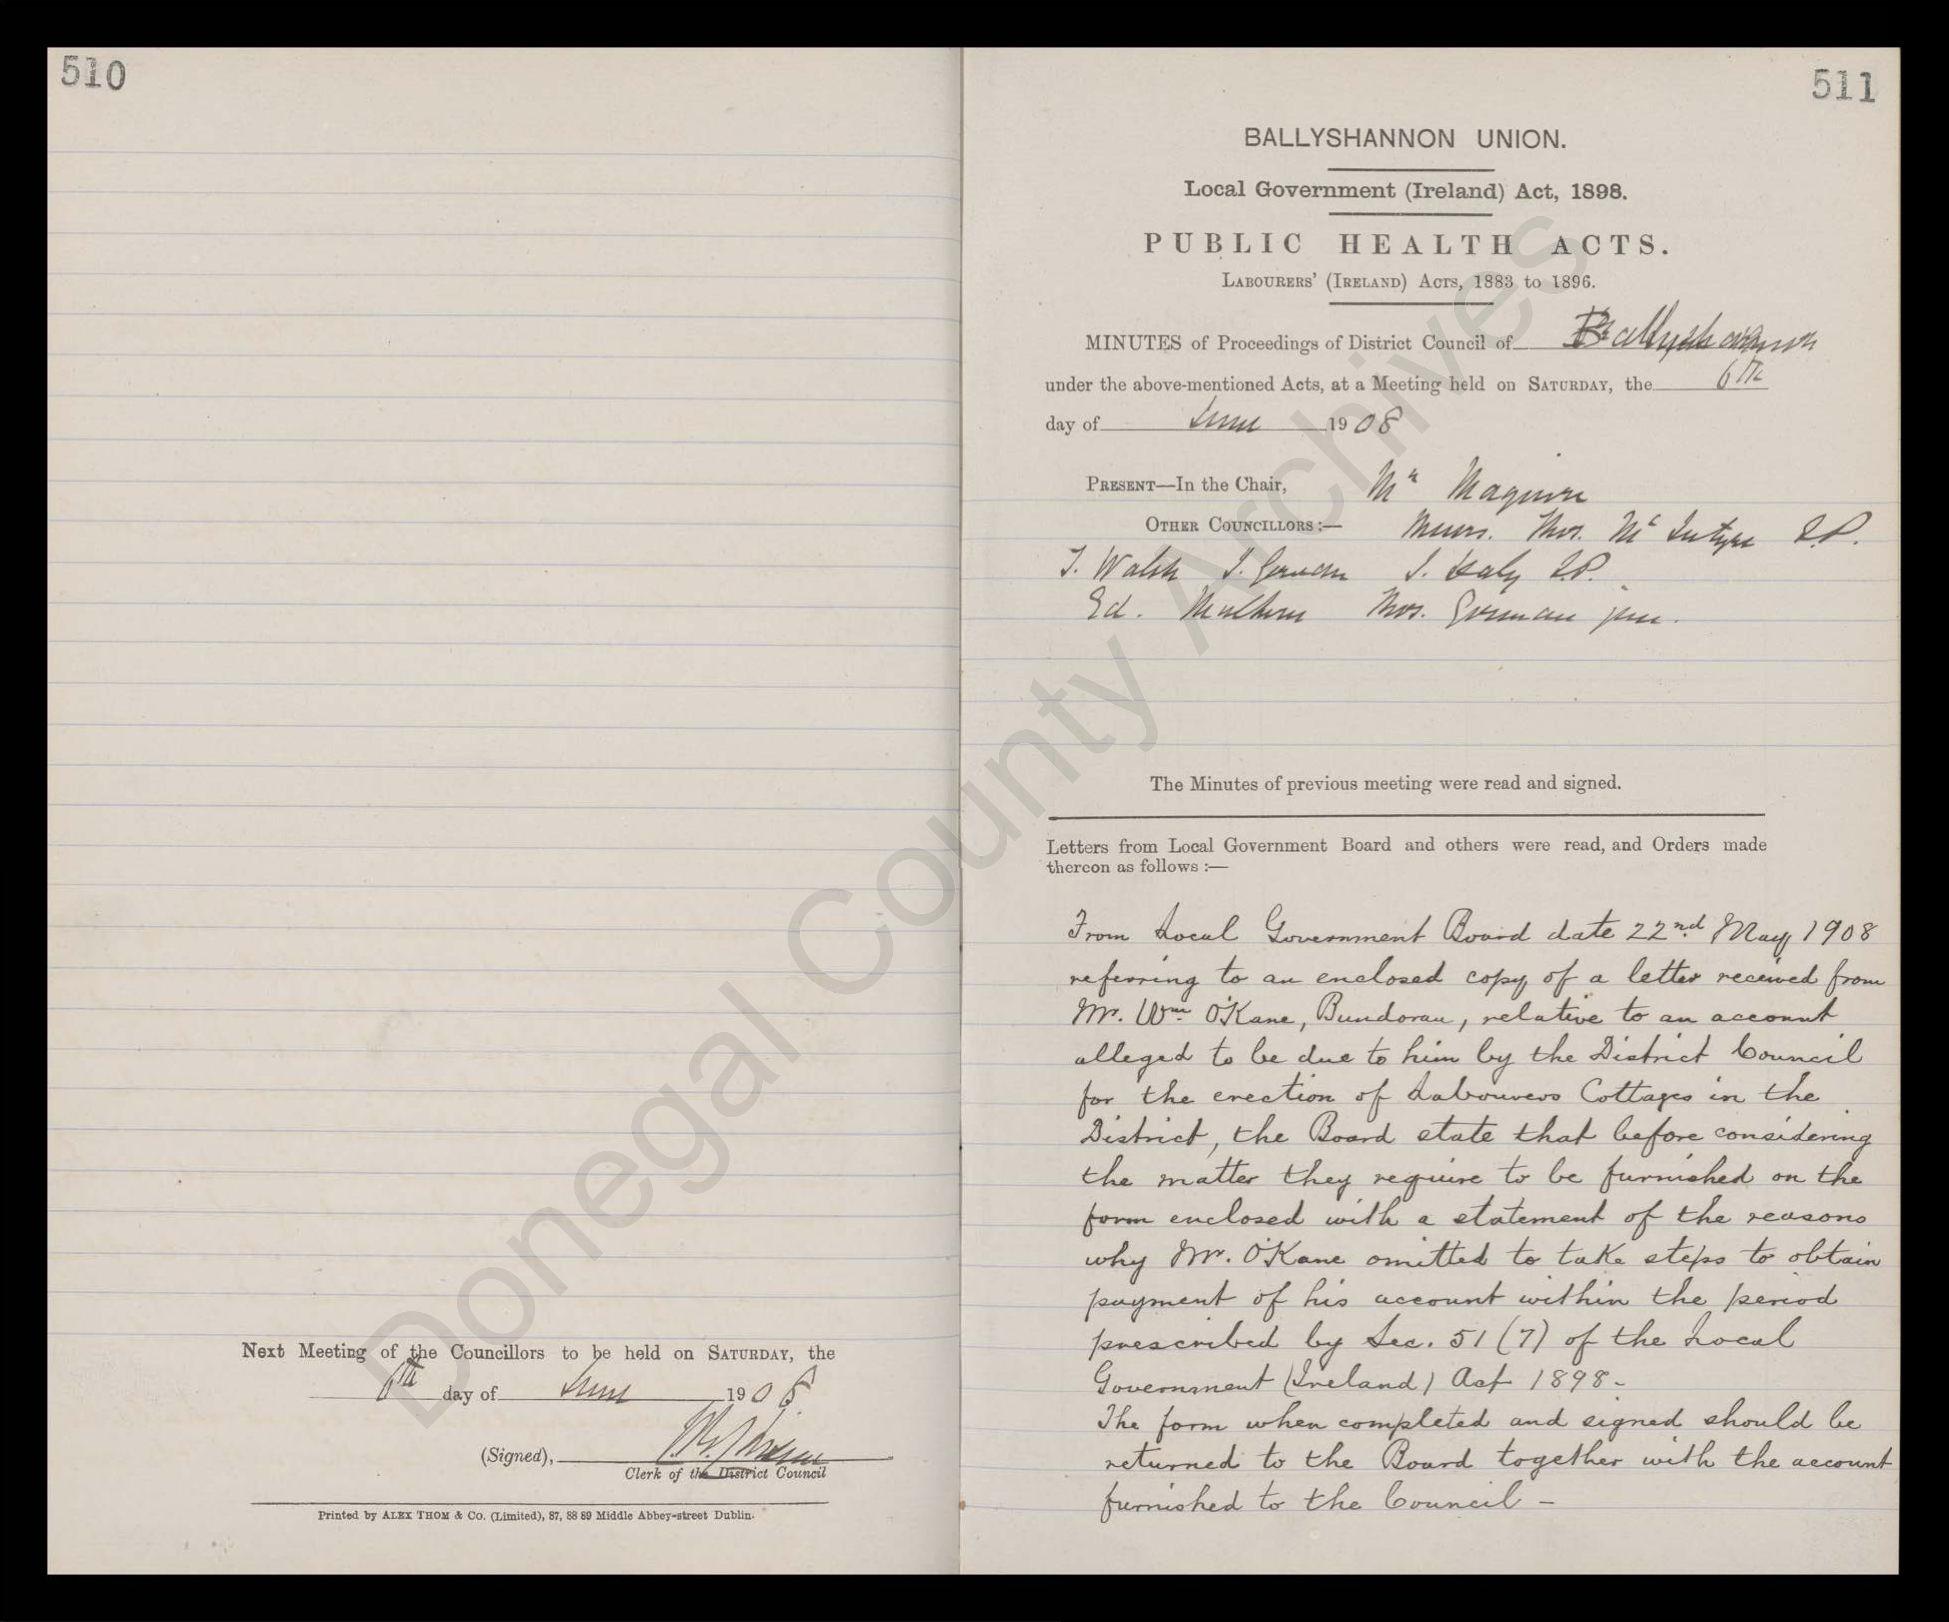 510
Next Meeting of the Councillors to be held on SATURDAY, the
6th day of June 1908
(Signed),
Clerk of the District Council
Printed by ALEX THOM & Co. (Limited), 87, 88 89 Middle Abbey-street Dublin.
511
BALLYSHANNON UNION.
Local Government (Ireland) Act, 1898.
PUBLIC HEALTH ACTS.
LABOURERS' (IRELAND) ACTS, 1883 to 1896.
MINUTES of Proceedings of District Council of Ballyshannon
under the above-mentioned Acts, at a Meeting held on SATURDAY, the 6th
day of June 1908
PRESENT—In the Chair, Mr Maguire
OTHER COUNCILLORS:— Messrs. Thos. McIntyre J.P.
T. Walsh J. J. Daly J.P.
Ed. Mulhern Thos. Gorman jun.
The Minutes of previous meeting were read and signed.
Letters from Local Government Board and others were read, and Orders made
thereon as follows :—
From Local Government Board date 22nd May 1908
referring to an enclosed copy of a letter received from
Mr. Wm O'Kane, Bundoran, relative to an account
alleged to be due to him by the District Council
for the erection of Labourers Cottages in the
District, the Board state that before considering
the matter they require to be furnished on the
form enclosed with a statement of the reasons
why Mr. O'Kane omitted to take steps to obtain
payment of his account within the period
prescribed by Sec. 51 (7) of the Local
Government (Ireland) Act 1898-
The form when completed and signed should be
returned to the Board together with the account
furnished to the Council -
Donegal County Archives